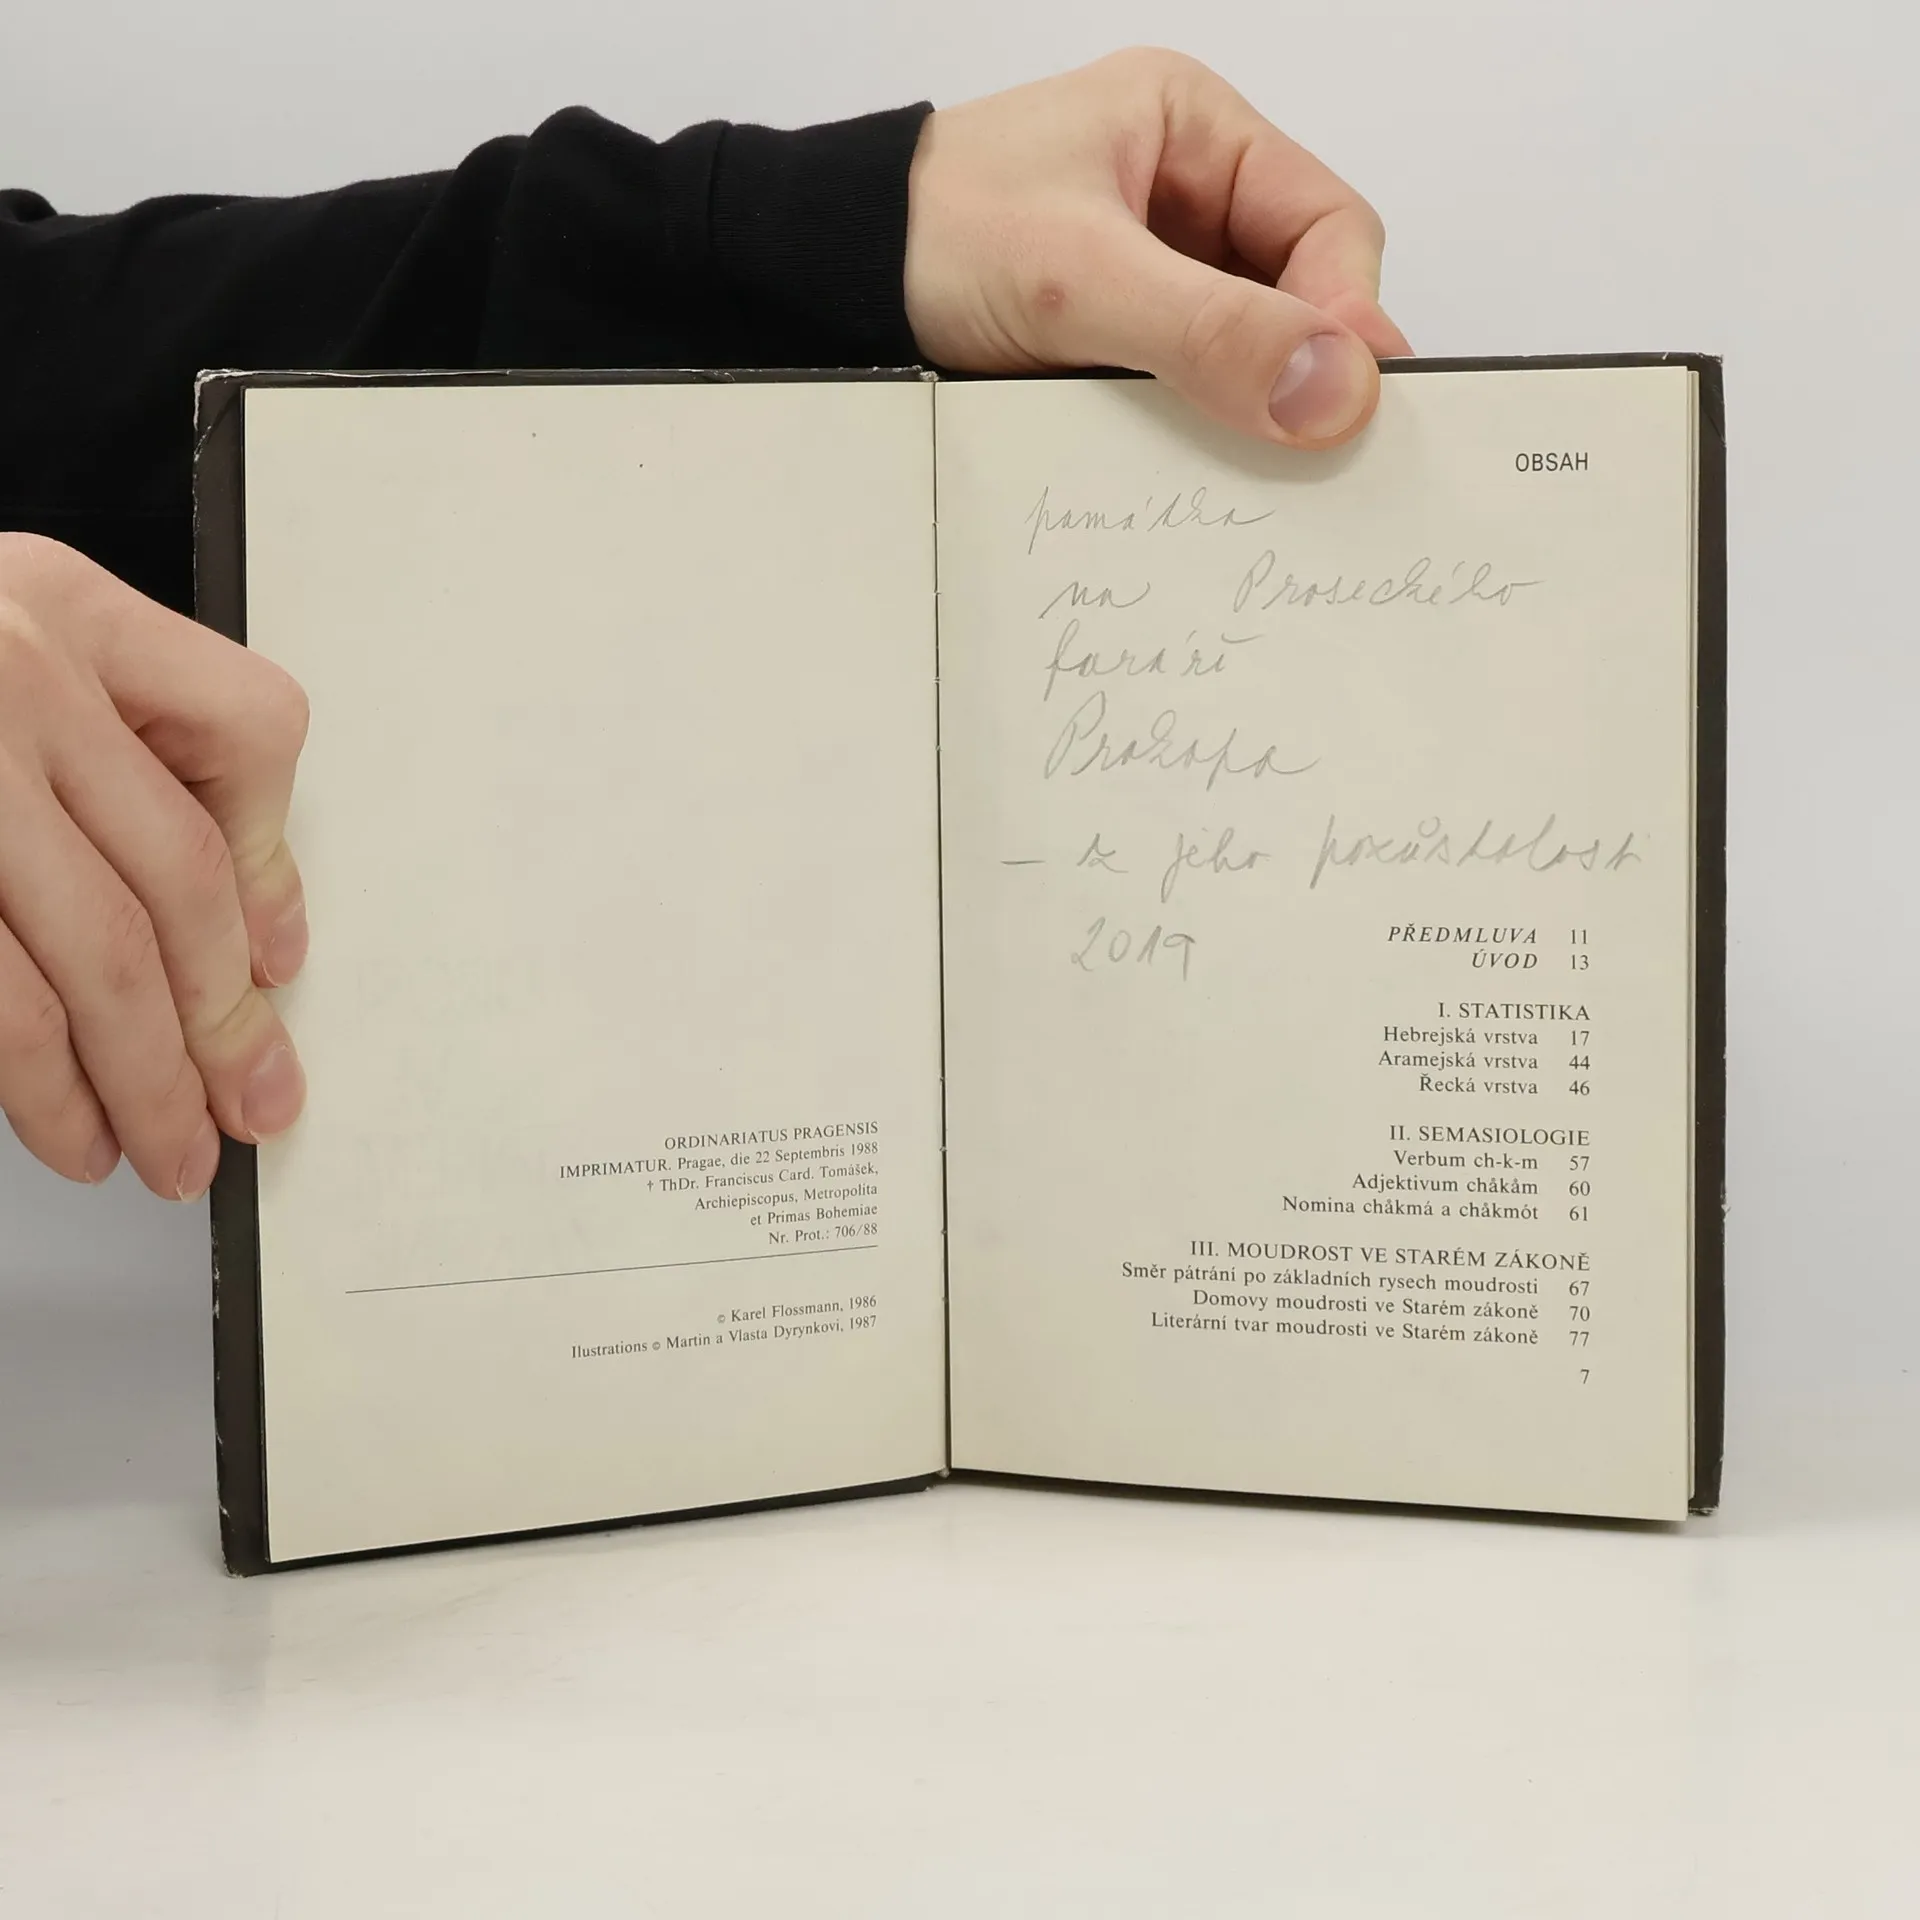 ORDINARIATUS PRAGENSIS
IMPRIMATUR. Pragae, die 22 Septembris 1988
† ThDr. Franciscus Card. Tomášek,
Archiepiscopus, Metropolita
et Primas Bohemiae
Nr. Prot.: 706/88
© Karel Flossmann, 1986
Ilustrations © Martin a Vlasta Dyrynkovi, 1987
OBSAH
památka
na Proseckého
faráře
Prokopa
– z jeho pozůstalosti
2019
PŘEDMLUVA 11
ÚVOD 13
I. STATISTIKA
Hebrejská vrstva 17
Aramejská vrstva 44
Řecká vrstva 46
II. SEMASIOLOGIE
Verbum ch-k-m 57
Adjektivum chåkåm 60
Nomina chåkmá a chåkmót 61
III. MOUDROST VE STARÉM ZÁKONĚ
Směr pátrání po základních rysech moudrosti 67
Domovy moudrosti ve Starém zákoně 70
Literární tvar moudrosti ve Starém zákoně 77
7